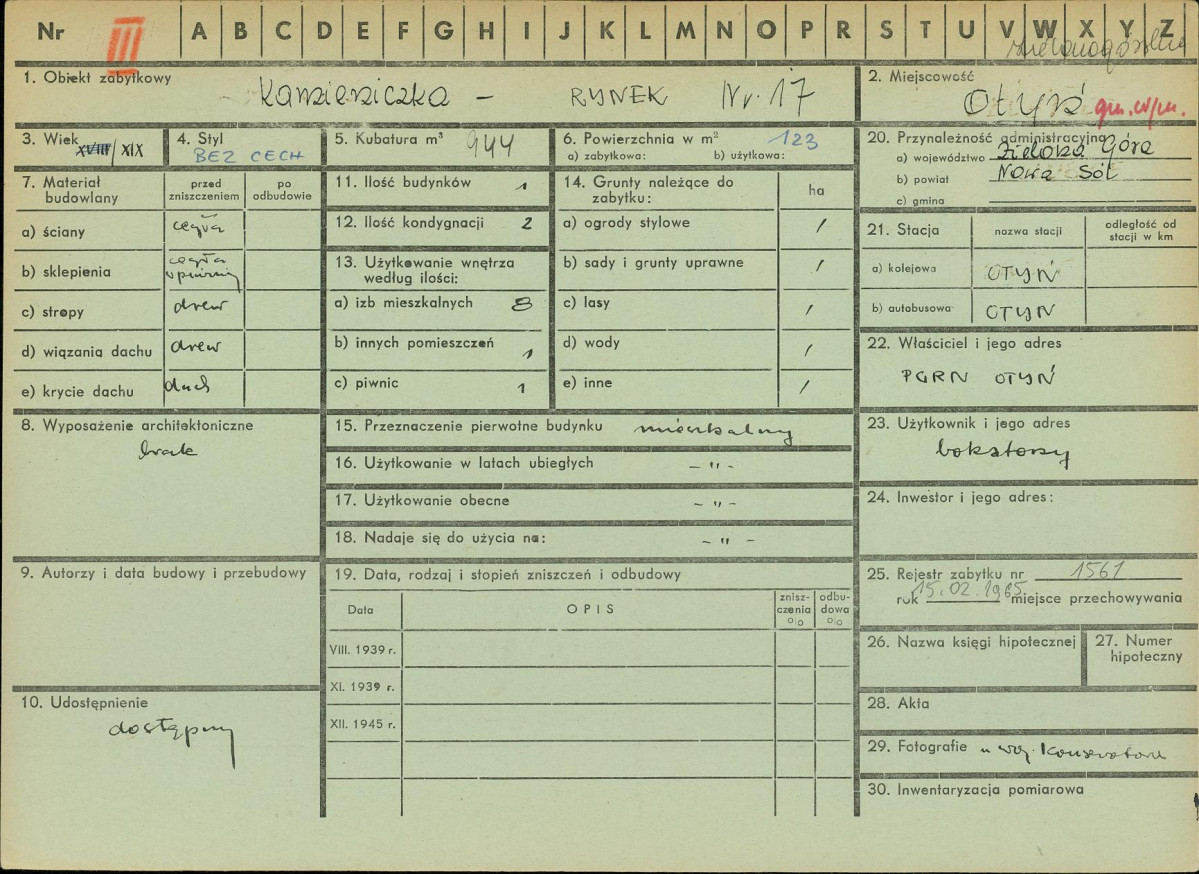 Nr III A B C D E F G H I J K L M N O P R S T U V W X Y Z
zielonogórskie
1. Obiekt zabytkowy Kamieniczka – RYNEK Nr. 17
2. Miejscowość Otyń gm. w/m.
3. Wiek XVIII/XIX
4. Styl BEZ CECH
5. Kubatura m³ 944
6. Powierzchnia w m² 123
a) zabytkowa: b) użytkowa:
7. Materiał budowlany
przed zniszczeniem
po odbudowie
a) ściany cegła
b) sklepienia cegła
c) stropy drew
d) wiązania dachu drew
e) krycie dachu dach
8. Wyposażenie architektoniczne
brak
9. Autorzy i data budowy i przebudowy
10. Udostępnienie
dostępny
11. Ilość budynków 1
12. Ilość kondygnacji 2
13. Użytkowanie wnętrza według ilości:
a) izb mieszkalnych 8
b) innych pomieszczeń 1
c) piwnic 1
14. Grunty należące do zabytku: ha
a) ogrody stylowe /
b) sady i grunty uprawne /
c) lasy /
d) wody /
e) inne /
15. Przeznaczenie pierwotne budynku mieszkalny
16. Użytkowanie w latach ubiegłych – " –
17. Użytkowanie obecne – " –
18. Nadaje się do użycia na: – " –
19. Data, rodzaj i stopień zniszczeń i odbudowy
Data OPIS znisz-czenia % odbu-dowa %
VIII. 1939 r.
XI. 1939 r.
XII. 1945 r.
20. Przynależność administracyjna
a) województwo Zielona Góra
b) powiat Nowa Sól
c) gmina
21. Stacja nazwa stacji odległość od stacji w km
a) kolejowa OTYŃ
b) autobusowa OTYŃ
22. Właściciel i jego adres
PGRN OTYŃ
23. Użytkownik i jego adres
lokatorzy
24. Inwestor i jego adres:
25. Rejestr zabytku nr 1561
rok 15.02.1965 miejsce przechowywania
26. Nazwa księgi hipotecznej
27. Numer hipoteczny
28. Akta
29. Fotografie u woj. Konserwatora
30. Inwentaryzacja pomiarowa